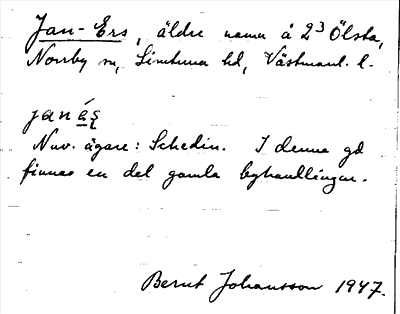 Jan-Ers, äldre namn å 2³ Ölsta,
Norrby sn, Simtuna hd, Västmanl. l.
janás̨
Nuv. ägare: Schedin. I denna gd
finnas en del gamla byhandlingar.
Bernt Johansson 1947.